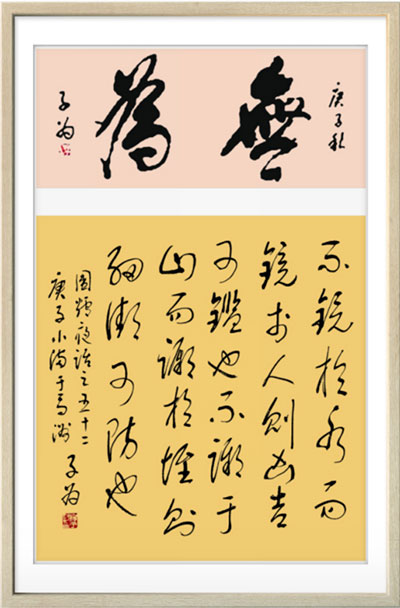 庚子秋
無為
子为
不鏡於水而
鏡於人則凶吉
可鑑也不蹶于
山而蹶於垤則
細微可防也
圍爐夜話之五十二
庚子小滿于
子为